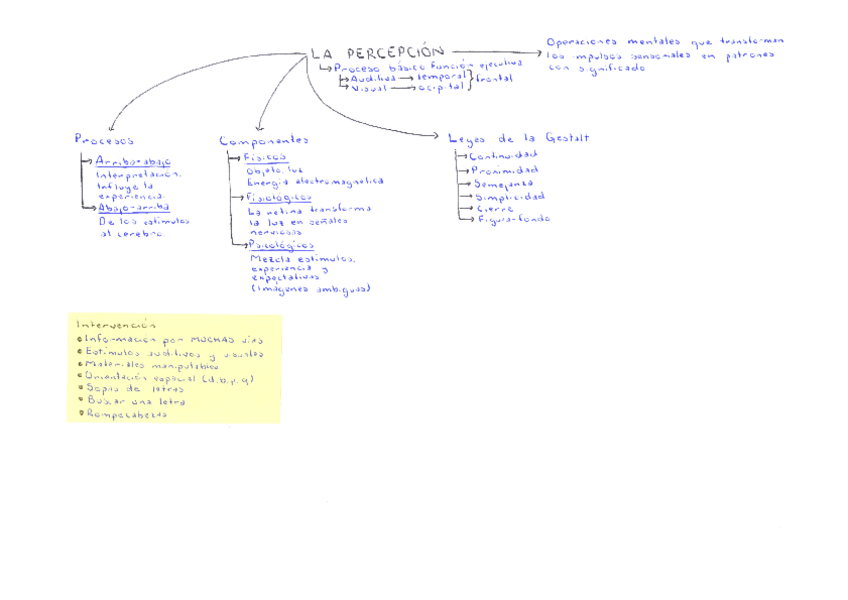 LA PERCEPCIÓN
Operaciones mentales que transforman
los impulsos sensoriales en patrones
con significado
Proceso básico función ejecutiva
Auditiva temporal
Visual occipital
frontal
Procesos
Arriba-abajo
Interpretación.
Influye la
experiencia.
Abajo-arriba
De los estímulos
al cerebro.
Componentes
Físicos
Objeto, luz
Energía electromagnética
Fisiológicos
La retina transforma
la luz en señales
nerviosas
Psicológicos
Mezcla estímulos,
experiencia y
expectativas
(imágenes ambiguas)
Leyes de la Gestalt
Continuidad
Proximidad
Semejanza
Simplicidad
Cierre
Figura-fondo
Intervención
Información por MUCHAS vías
Estímulos auditivos y visuales
Materiales manipulables
Orientación espacial (d, b, p, q)
Sopas de letras
Buscar una letra
Rompecabezas